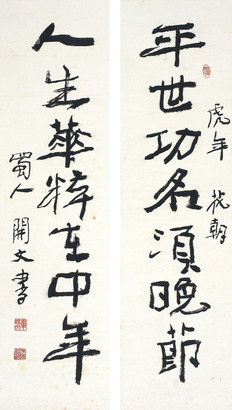 平世功名須晚節
虎年花朝
人生華粹在中年
蜀人開文書